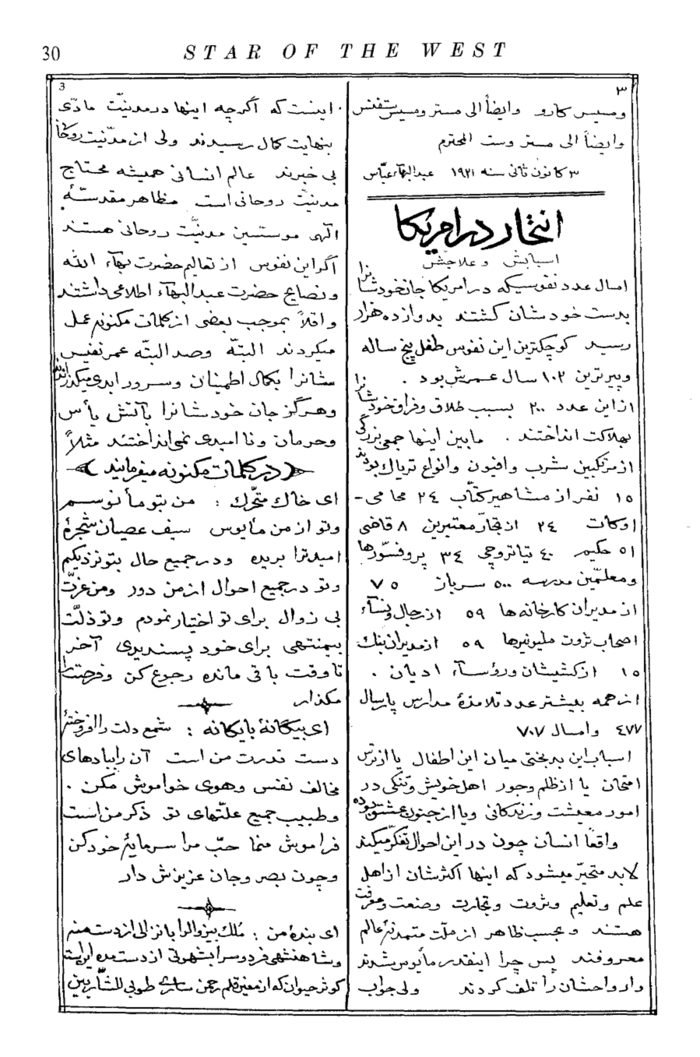 30
STAR OF THE WEST
۳
ومیسیس کارو وایضاً الی مستر ومیسیس ستفنس
وایضاً الی مستر وست المحترم
۳ کانون ثانی سنه ۱۹۲۱ عبدالبهآء عبّاس
انتحار در امریکا
اسبابش وعلاجش
امسال عدد نفوسیکه در امریکا جان خودشانرا
بدست خودشان کشتند بدوازده هزار
رسید کوچکترین این نفوس طفل پنج ساله
وپیرترین ۱۰۲ سال عمرش بود .
از این عدد ۲۰۰ بسبب طلاق وفراق خودشانرا
بهلاکت انداختند . مابین اینها جمعی بزرگی
از مرتکبین شرب وافیون وانواع تریاک بودند
۱۵ نفر از مشاهیر کتّاب ۲۴ محامی -
اوکات ۲۴ از تجّار معتبرین ۸ قاضی
۵۱ حکیم ۴۰ تیاتروچی ۳۴ پروفسّورها
ومعلّمین مدرسه ۵۰۰ سرباز ۷۵
از مدیران کارخانه‌ها ۵۹ از رجال ونسآء
اصحاب ثروت ملیونیرها ۵۹ از مدیران بنک
۱۵ از کشیشان ورؤسآء ادیان .
از همه بیشتر عدد تلامذهٔ مدارس پارسال
۴۷۷ وامسال ۷۰۷
اسباب این بدبختی میان این اطفال یا از ترس
امتحان یا از ظلم وجور اهل خویش وتنگی در
امور معیشت وزندگانی ویا از جنون عشق بوده
واقعاً انسان چون در این احوال تفکّر میکند
لابد متحیّر میشود که اینها اکثرشان از اهل
علم وتعلیم وثروت وتجارت وصنعت ومعرفت
هستند وبحسب ظاهر از ملّت متمدّنهٔ عالم
معروفند پس چرا اینقدر مأیوس شدند
وارواحشان را تلف کردند ولی جواب
3
اینست که اگرچه اینها در مدنیّت مادّی
بنهایت کمال رسیدند ولی از مدنیّت روحانی
بی خبرند عالم انسانی همیشه محتاج
مدنیّت روحانی است مظاهر مقدسهٔ
الهی موسّسین مدنیّت روحانی هستند
اگر این نفوس از تعالیم حضرت بهآء الله
ونصایح حضرت عبدالبهآء اطلاعی داشتند
واقلاً بموجب بعضی از کلمات مکنونه عمل
میکردند البتّه وصد البتّه عمر نفیس
شانرا بکمال اطمینان وسرور ابدی میگذراندند
وهرگز جان خودشانرا بآتش یأس
وحرمان ونا امیدی نمی انداختند مثلاً
در کلمات مکنونه میفرمایند
ای خاک متحرّک : من بتو مأنوسم
وتو از من مأیوس سیف عصیان شجرهٔ
امید ترا بریده ودر جمیع حال بتو نزدیکم
وتو در جمیع احوال از من دور ومن عزّت
بی زوال برای تو اختیار نمودم وتو ذلّت
بیمنتهی برای خود پسندیدی آخر
تا وقت باقی مانده رجوع کن وفرصت را
مگذار
ای بیگانهٔ با یگانه : شمع دلت را افروختهٔ
دست قدرت من است آن را ببادهای
مخالف نفس وهوی خواموش مکن .
وطبیب جمیع علّتهای تو ذکر من است
فراموش منما حبّ مرا سرمایهٔ خود کن
وچون بصر وجان عزیزش دار
ای بندهٔ من : مُلک بیزوال را بانزالی از دست منه
وشاهنشهی فردوس را بشهوتی از دست مده اینست
کوثر حیوان که از معین قلم رحمن ساری طوبی للشّاربین